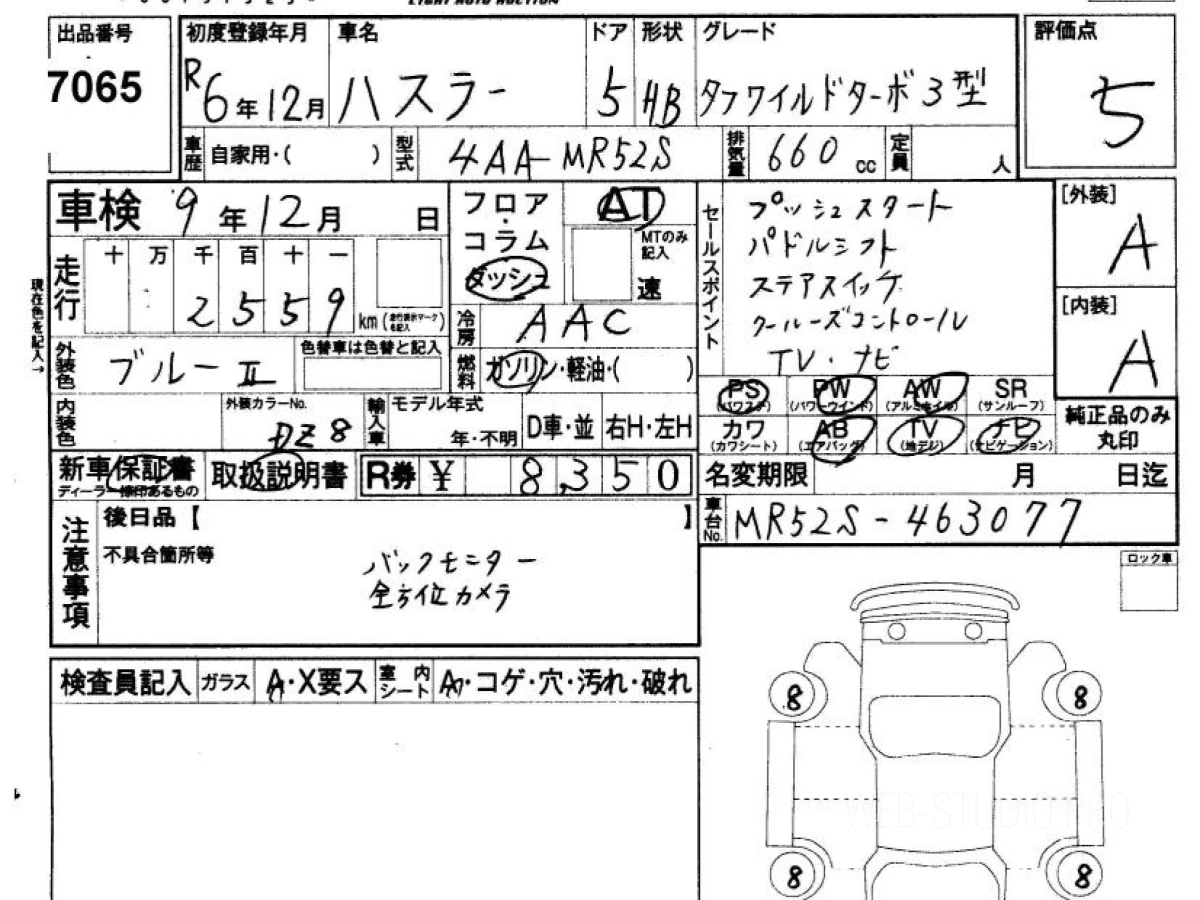 LIGHT AUTO AUCTION
出品番号 初度登録年月 車名 ドア 形状 グレード 評価点
7065 R6年12月 ハスラー 5 HB タフワイルドターボ3型 5
車歴 自家用・( ) 型式 4AA-MR52S 排気量 660 cc 定員 人
車検 9年12月 日 フロア・コラム ダッシュ AT セールスポイント プッシュスタート [外装]
MTのみ記入 速 パドルシフト A
走行 十 万 千 百 十 一 ステアスイッチ
2 5 5 9 km (走行表示マークを記入) 冷房 AAC クルーズコントロール [内装]
現在色を記入→
外装色 ブルーII 色替車は色替と記入 燃料 ガソリン・軽油・( ) TV・ナビ A
PS PW AW SR
(パワステ) (パワーウインド) (アルミホイル) (サンルーフ)
内装色 外装カラーNo. DZ8 輸入車 モデル年式 年・不明 D車・並 右H・左H カワ AB TV ナビ 純正品のみ
(カワシート) (エアバッグ) (地デジ) (ナビゲーション) 丸印
新車保証書 取扱説明書 R券 ¥ 8,350 名変期限 月 日迄
ディーラー捺印あるもの
注意事項 後日品【 】 車台No. MR52S-463077
不具合箇所等
バックモニター
全方位カメラ
ロック車
検査員記入 ガラス A・X要ス 室内シート A・コゲ・穴・汚れ・破れ
8 8
WEB-STUDIO.PRO
8 8